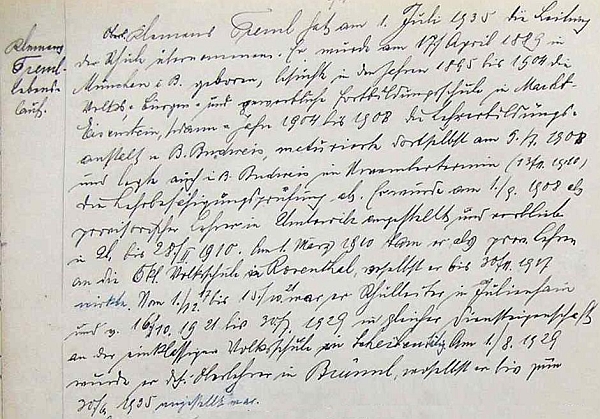 Klemens
Treml
Lebens-
lauf.
Klemens Treml hat am 1. Juli 1935 die Leitung
der Schule übernommen. Er wurde am 17. April 1889 in
München i. B. geboren, besuchte in den Jahren 1895 bis 1904 die
Volks- Bürger- und gewerbliche Fortbildungsschule in Markt-
Eisenstein, dann Jahre 1904 bis 1908 die Lehrerbildungs-
anstalt in B. Budweis, maturierte dortselbst am 1908
und legte auch in B. Budweis im Novembertermin 1910
die Lehrbefähigungsprüfung ab. Er wurde am 1./9. 1908 als
provisorischer Lehrer in angestellt und verblieb
bis 28. 1910. Am 1. März 1910 kam er als prov. Lehrer
an die Kl. Volksschule in Rosenthal, woselbst er bis 1917
wirkte. Vom bis war er Schulleiter in Julienhain
und v. 16./10. 1921 bis 1929 in gleicher Diensteigenschaft
an der einklassigen Volksschule in Am 1./8. 1929
wurde er Oberlehrer in Brünnl, woselbst er bis zum
1935 angestellt war.